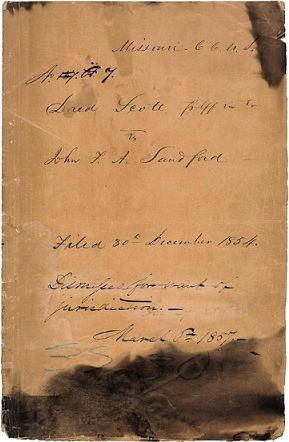 Missouri. C. C. U. S.
No. 7.
Dred Scott plff in er
vs
John F. A. Sandford
Filed 30th December 1854.
Dismissed for want of
jurisdiction.
March 6th 1857.